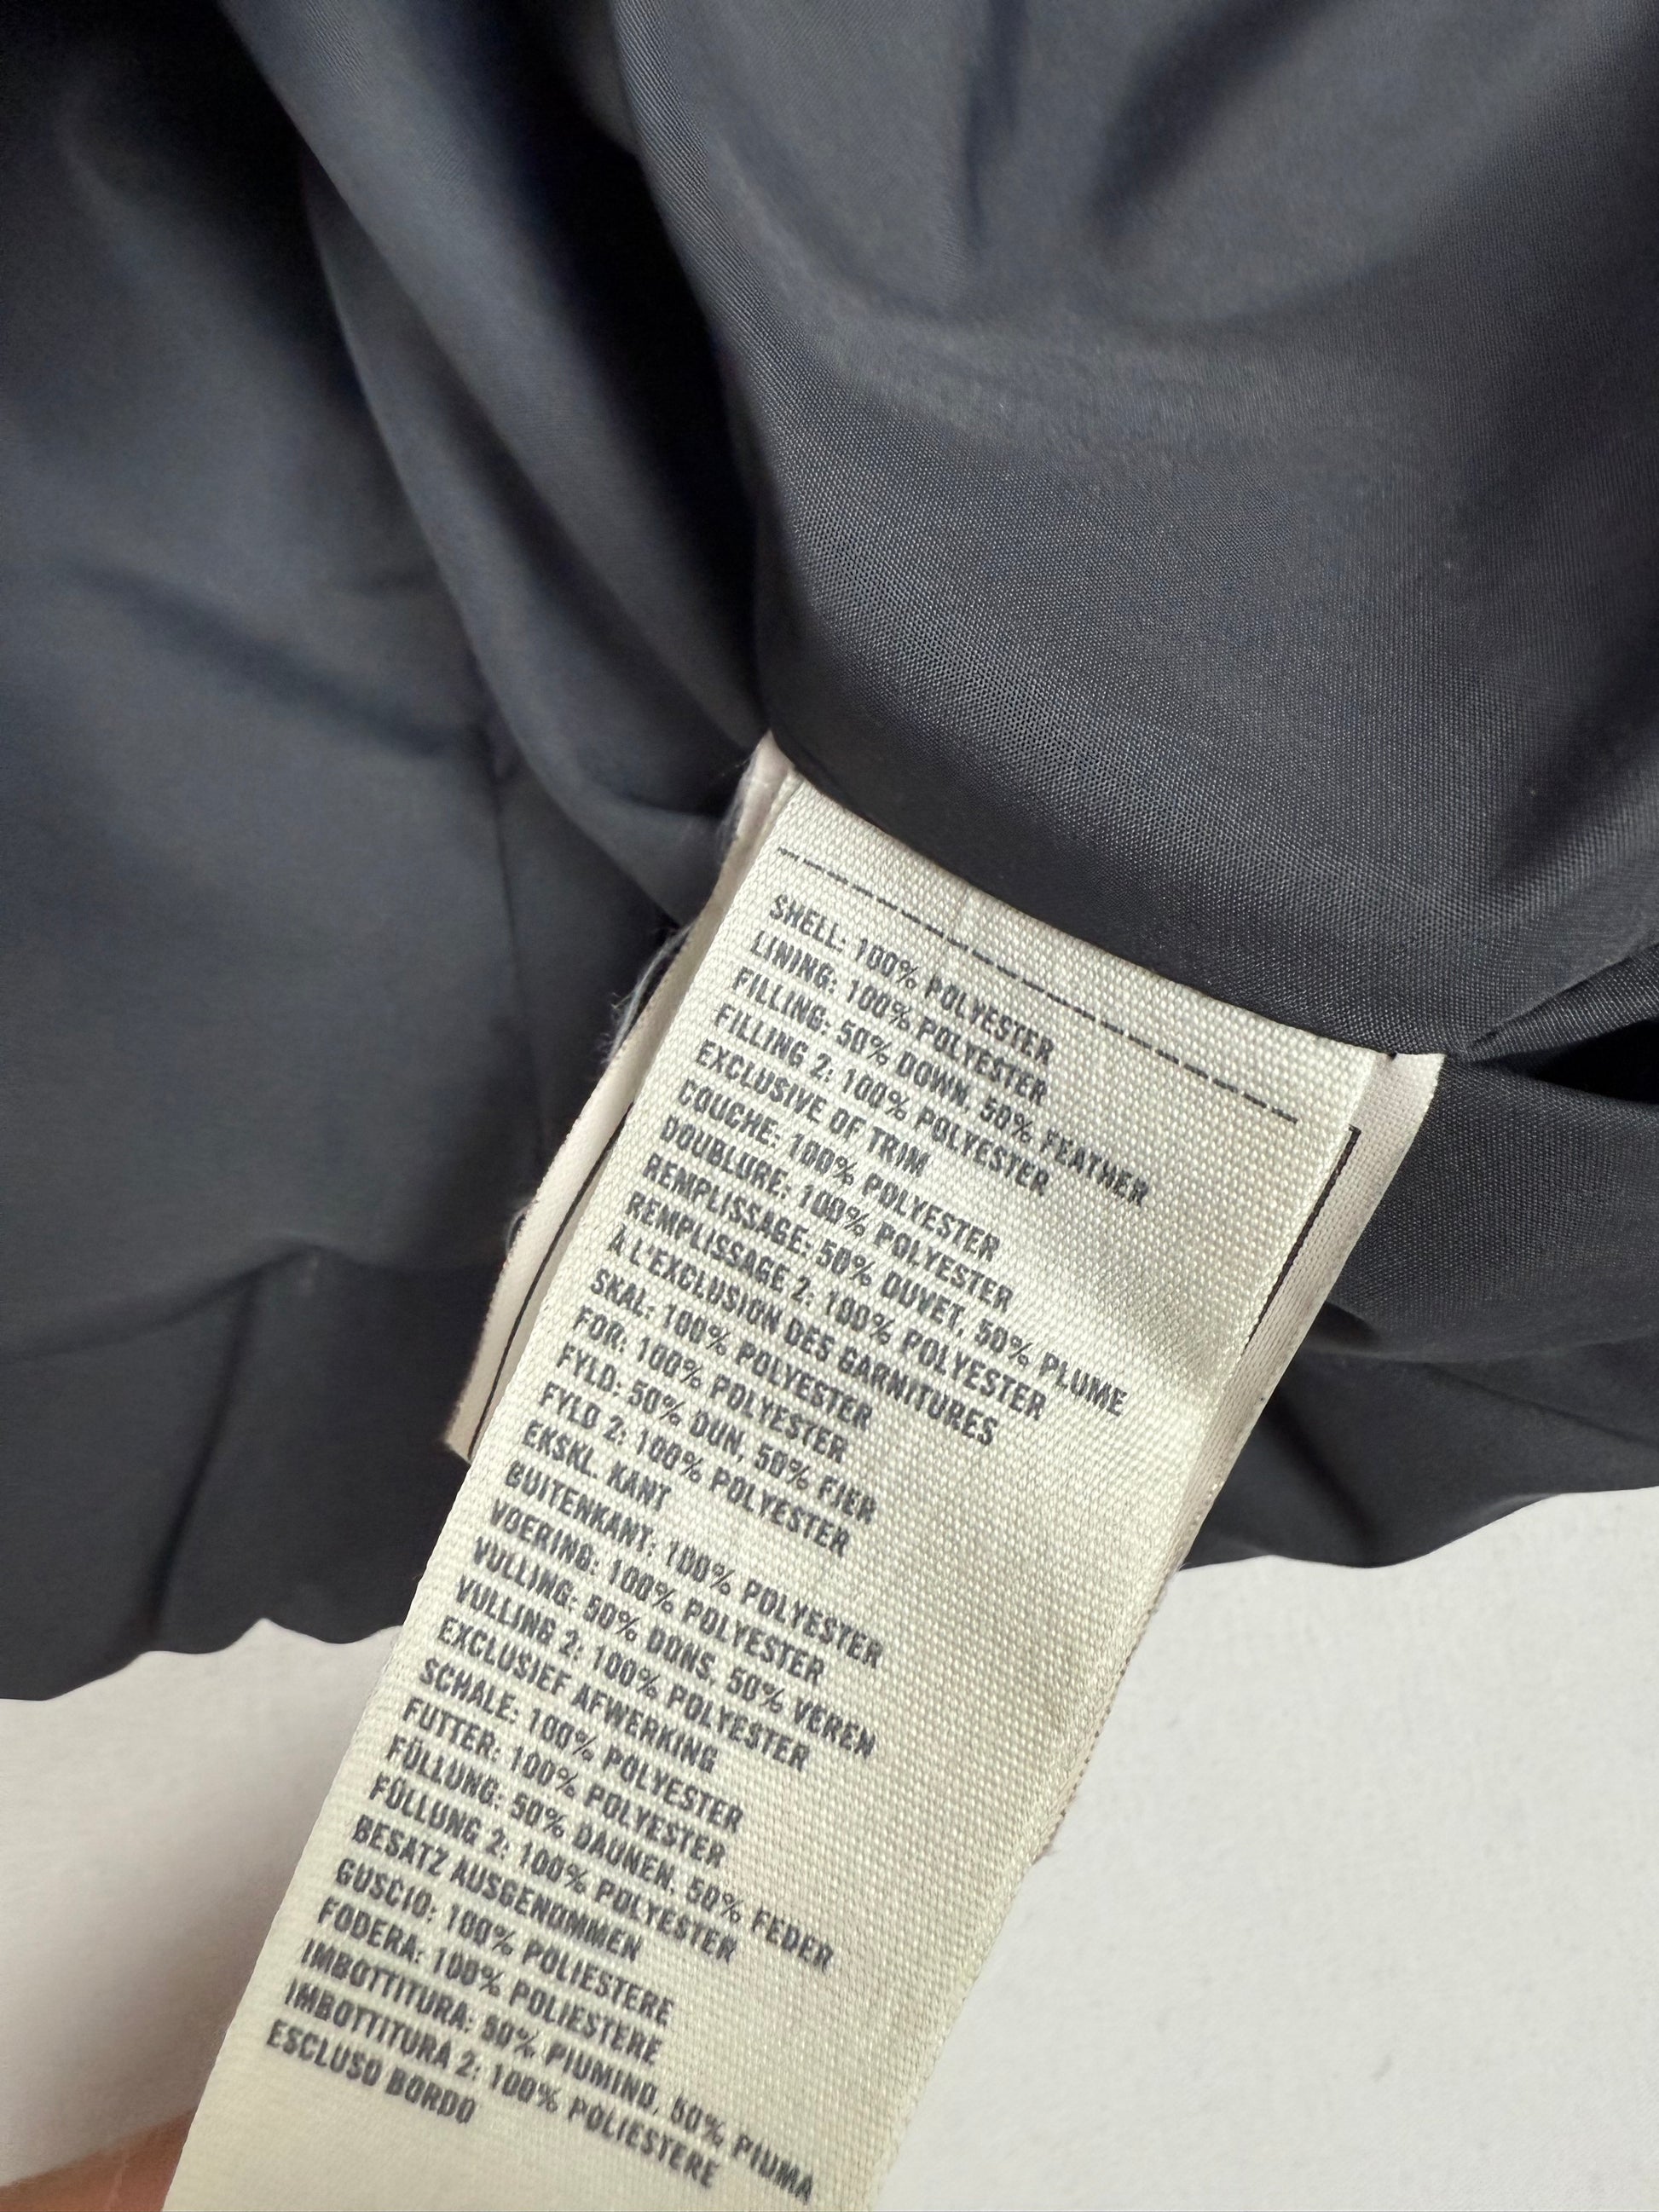 SHELL: 100% POLYESTER
LINING: 100% POLYESTER
FILLING: 50% DOWN, 50% FEATHER
FILLING 2: 100% POLYESTER
EXCLUSIVE OF TRIM
COUCHE: 100% POLYESTER
DOUBLURE: 100% POLYESTER
REMPLISSAGE: 50% DUVET, 50% PLUME
REMPLISSAGE 2: 100% POLYESTER
À L'EXCLUSION DES GARNITURES
SKAL: 100% POLYESTER
FOR: 100% POLYESTER
FYLD: 50% DUN, 50% FJER
FYLD 2: 100% POLYESTER
EKSKL. KANT
BUITENKANT: 100% POLYESTER
VOERING: 100% POLYESTER
VULLING: 50% DONS, 50% VEREN
VULLING 2: 100% POLYESTER
EXCLUSIEF AFWERKING
SCHALE: 100% POLYESTER
FUTTER: 100% POLYESTER
FÜLLUNG: 50% DAUNEN, 50% FEDER
FÜLLUNG 2: 100% POLYESTER
BESATZ AUSGENOMMEN
GUSCIO: 100% POLIESTERE
FODERA: 100% POLIESTERE
IMBOTTITURA: 50% PIUMINO, 50% PIUMA
IMBOTTITURA 2: 100% POLIESTERE
ESCLUSO BORDO